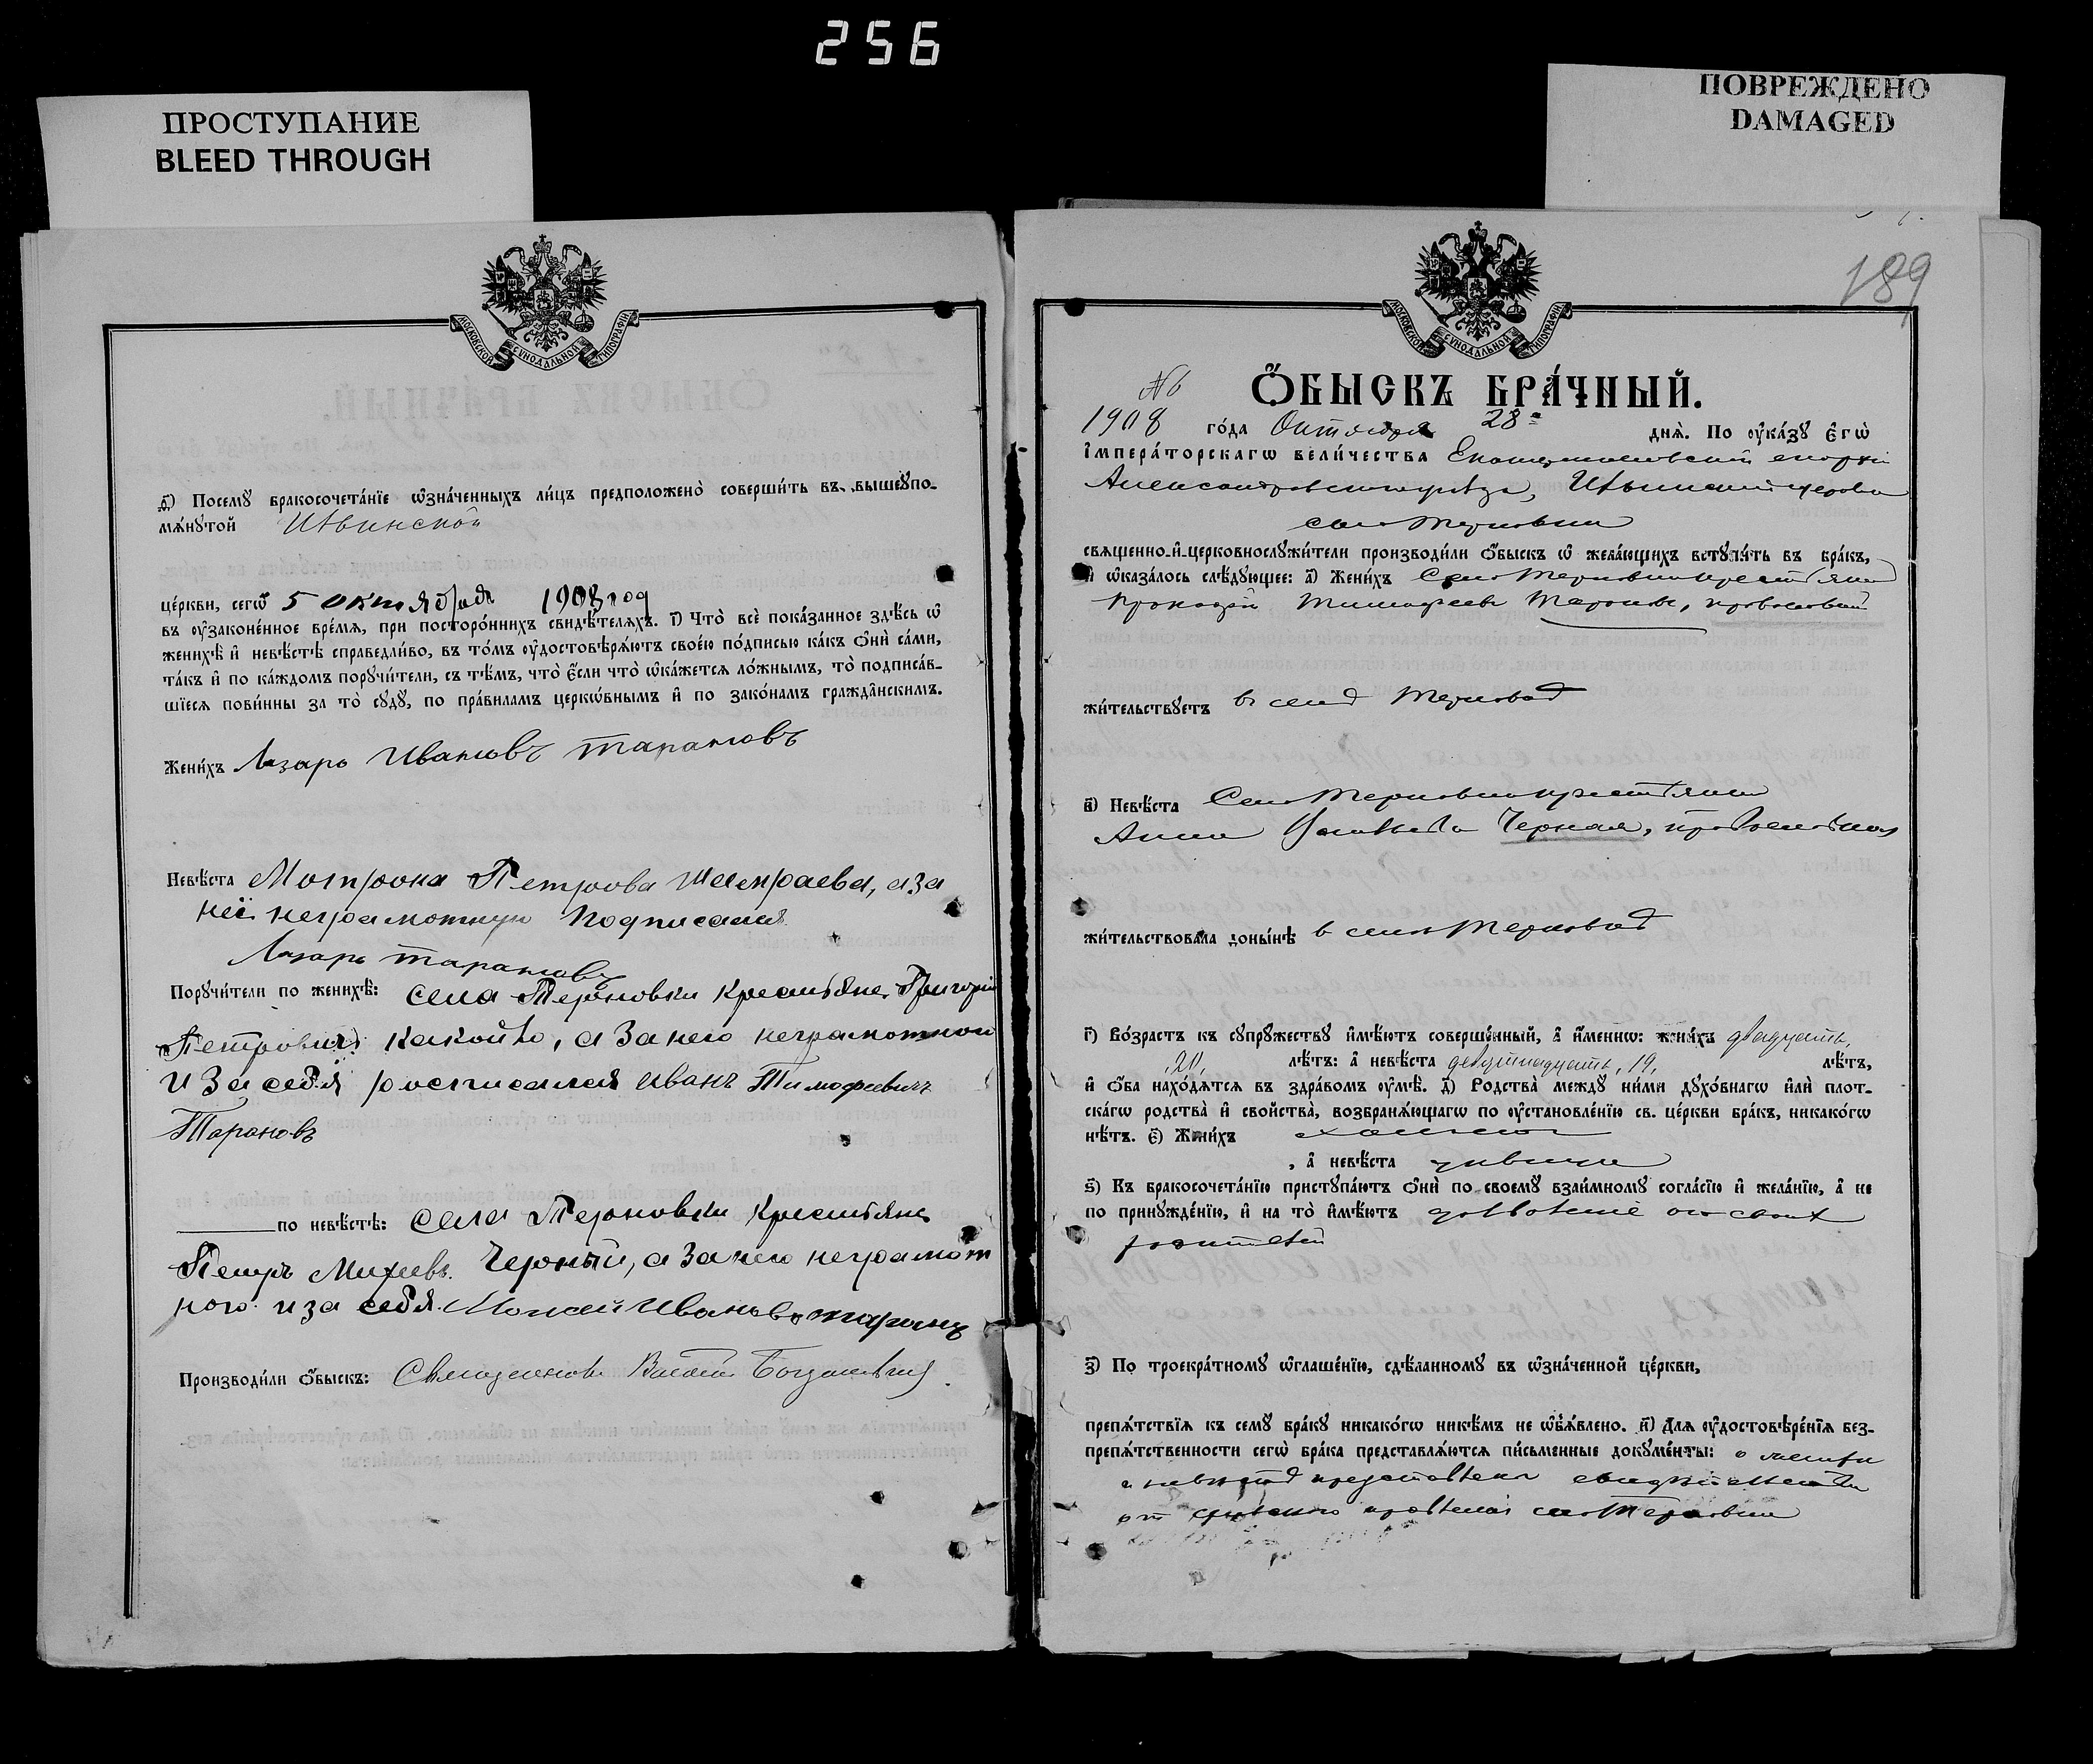 256
ПРОСТУПАНИЕ
BLEED THROUGH
ПОВРЕЖДЕНО
DAMAGED
МОСКОВСКОЙ СѴНОДАЛЬНОЙ ТИПОГРАФІИ
Посему бракосочетаніе ѡзначенныхъ лицъ предположено совершить въ вышеупо-
мянутой Ильинской
церкви, сегѡ 5 октября 1908 год
въ оузаконенное время, при постороннихъ свидѣтеляхъ. Что все показанное здѣсь ѡ
женихѣ и невѣстѣ справедливо, въ томъ оудостовѣряютъ своею подписью какъ ѻни сами,
такъ и по каждомъ поручители, съ тѣмъ, что если что ѡкажется ложнымъ, то подписав-
шіеся повинны за то суду, по правиламъ церковнымъ и по законамъ гражданскимъ.
Женихъ Лазарь Ивановъ Тарановъ
Невѣста Мотрона Петрова, а за
неё неграмотную подписался
Лазарь Тарановъ
Поручители по женихѣ: села Терновки крестьяне Григорій
Петровичъ, а за него неграмотного
и за себя росписался Иванъ Тимофеевичъ
Тарановъ
по невѣстѣ: села Терновки крестьяне
Петръ Михеевъ Черный, а за него неграмот
ного и за себя Мойсей Ивановъ
Производили ѻбыскъ: Священникъ Василій
189
МОСКОВСКОЙ СѴНОДАЛЬНОЙ ТИПОГРАФІИ
№
ѺБЫСКЪ БРАЧНЫЙ.
1908 года Октября 28 дня. По оуказу Егѡ
Імператорскагѡ величества Екатеринославской епархіи
Александровскаго уѣзда, Ильинской церкви
села Терновки
священно-и-церковнослужители производили ѻбыскъ ѡ желающихъ вступить въ бракъ,
и ѡказалось слѣдующее: а) Женихъ Села Терновки крестьянин
Тимофеевъ Тарановъ, православный
жительствуетъ в селѣ Терновкѣ
в) Невѣста Села Терновки крестьянка
Анна Черная, православная
жительствовала донынѣ в селѣ Терновкѣ
г) Возрастъ къ супружеству имѣютъ совершенный, а именнѡ: женихъ двадцать,
20, лѣтъ: а невѣста девятнадцать, 19, лѣтъ,
и ѻба находятся въ здравомъ оумѣ. д) Родства между ними духовнагѡ или плот-
скагѡ родства и свойства, возбраняющагѡ по оустановленію св. церкви бракъ, никакогѡ
нѣтъ. е) Женихъ холостой
, а невѣста дѣвица
ѕ) Къ бракосочетанію приступаютъ ѻни по своему взаимному согласію и желанію, а не
по принужденію, и на то имѣютъ дозволеніе от своихъ
родителей
з) По троекратному ѡглашенію, сдѣланному въ ѡзначенной церкви,
препятствія къ сему браку никакогѡ никѣмъ не ѡбъявлено. и) Для оудостовѣренія без-
препятственности сегѡ брака представляются письменные документы: о женихе
и невестѣ представлены
от сельскаго правленія села Терновки